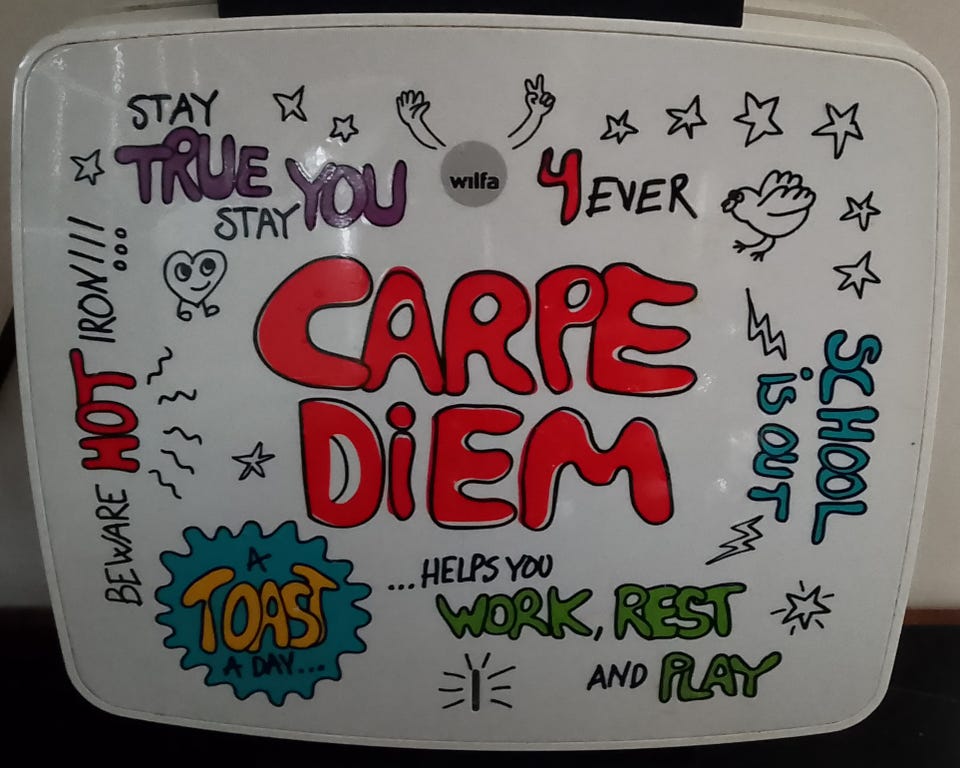 STAY
TRUE YOU
STAY
wilfa
4 EVER
BEWARE HOT IRON!!!
CARPE
DiEM
SCHOOL
iS OUT
A
TOAST
A DAY...
...HELPS YOU
WORK, REST
AND PLAY